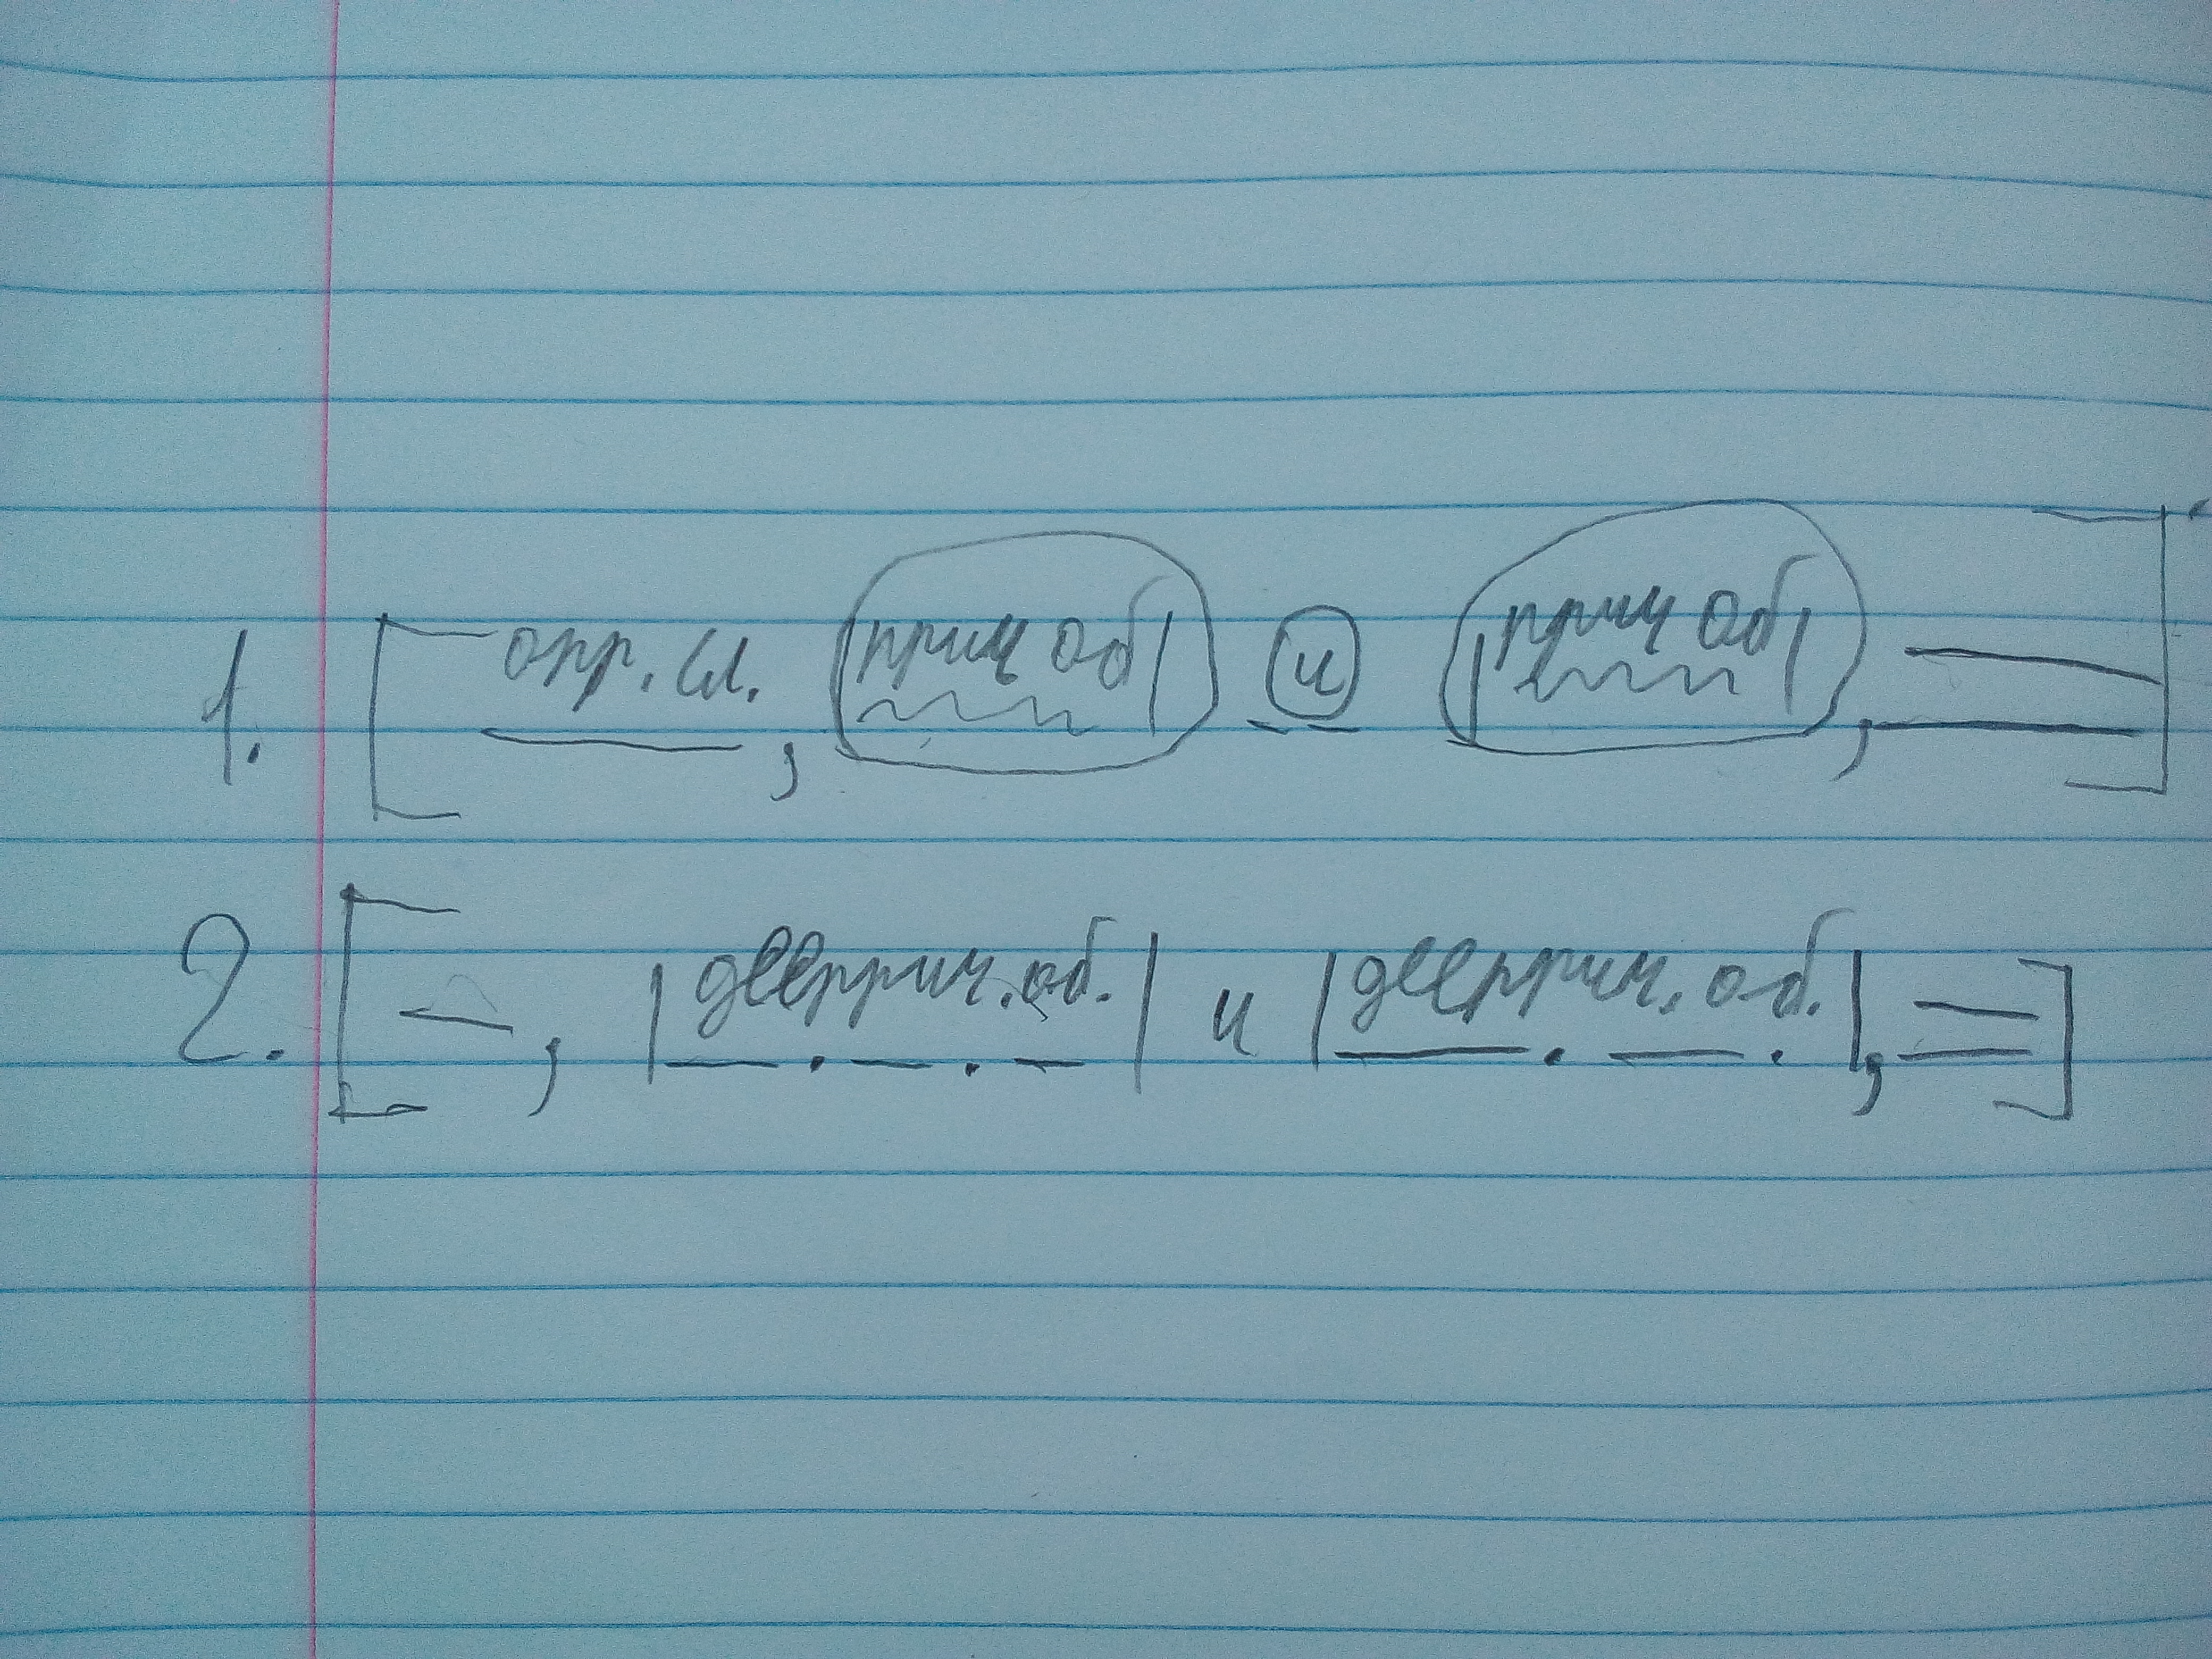 1. [ опр. сл. , |прич об| и |прич об| , ].
2. [ — , |дееприч. об.| и |дееприч. об.| , = ]